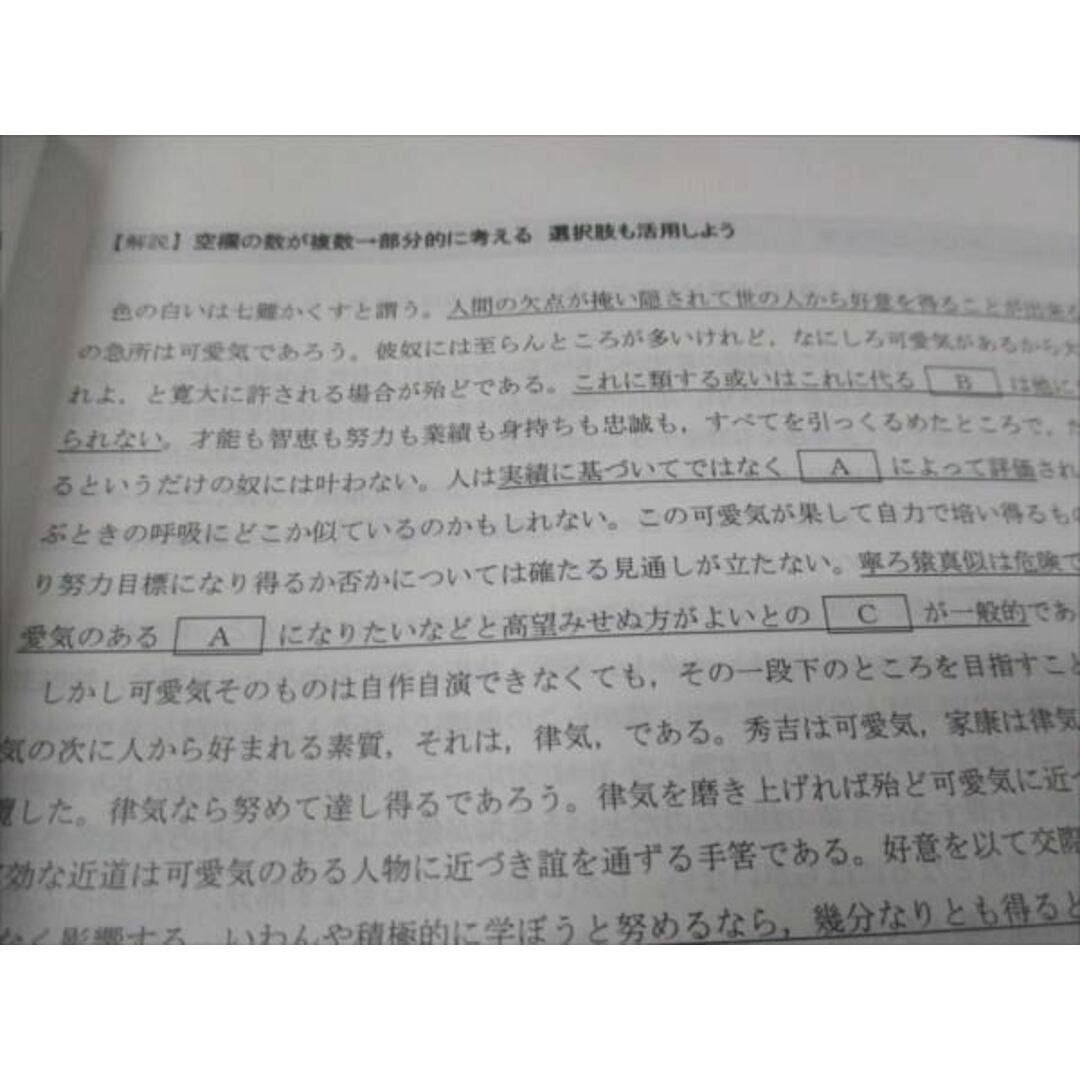 【解説】空欄の数が複数→部分的に考える 選択肢も活用しよう
色の白いは七難かくすと謂う。人間の欠点が掩い隠されて世の人から好意を得ることが出来る
の急所は可愛気であろう。彼奴には至らんところが多いけれど，なにしろ可愛気があるから
れよ，と寛大に許される場合が殆どである。これに類する或いはこれに代る B は他に
られない。才能も智恵も努力も業績も身持ちも忠誠も，すべてを引っくるめたところで，
るというだけの奴には叶わない。人は実績に基づいてではなく A によって評価され
ぶときの呼吸にどこか似ているのかもしれない。この可愛気が果して自力で培い得るもの
り努力目標になり得るか否かについては確たる見通しが立たない。寧ろ猿真似は危険で
愛気のある A になりたいなどと高望みせぬ方がよいとの C が一般的であ
しかし可愛気そのものは自作自演できなくても，その一段下のところを目指すこと
気の次に人から好まれる素質，それは，律気，である。秀吉は可愛気，家康は律気
した。律気なら努めて達し得るであろう。律気を磨き上げれば殆ど可愛気に近づ
効な近道は可愛気のある人物に近づき誼を通ずる手筈である。好意を以て交際
なく影響する。いわんや積極的に学ぼうと努めるなら，幾分なりとも得ると